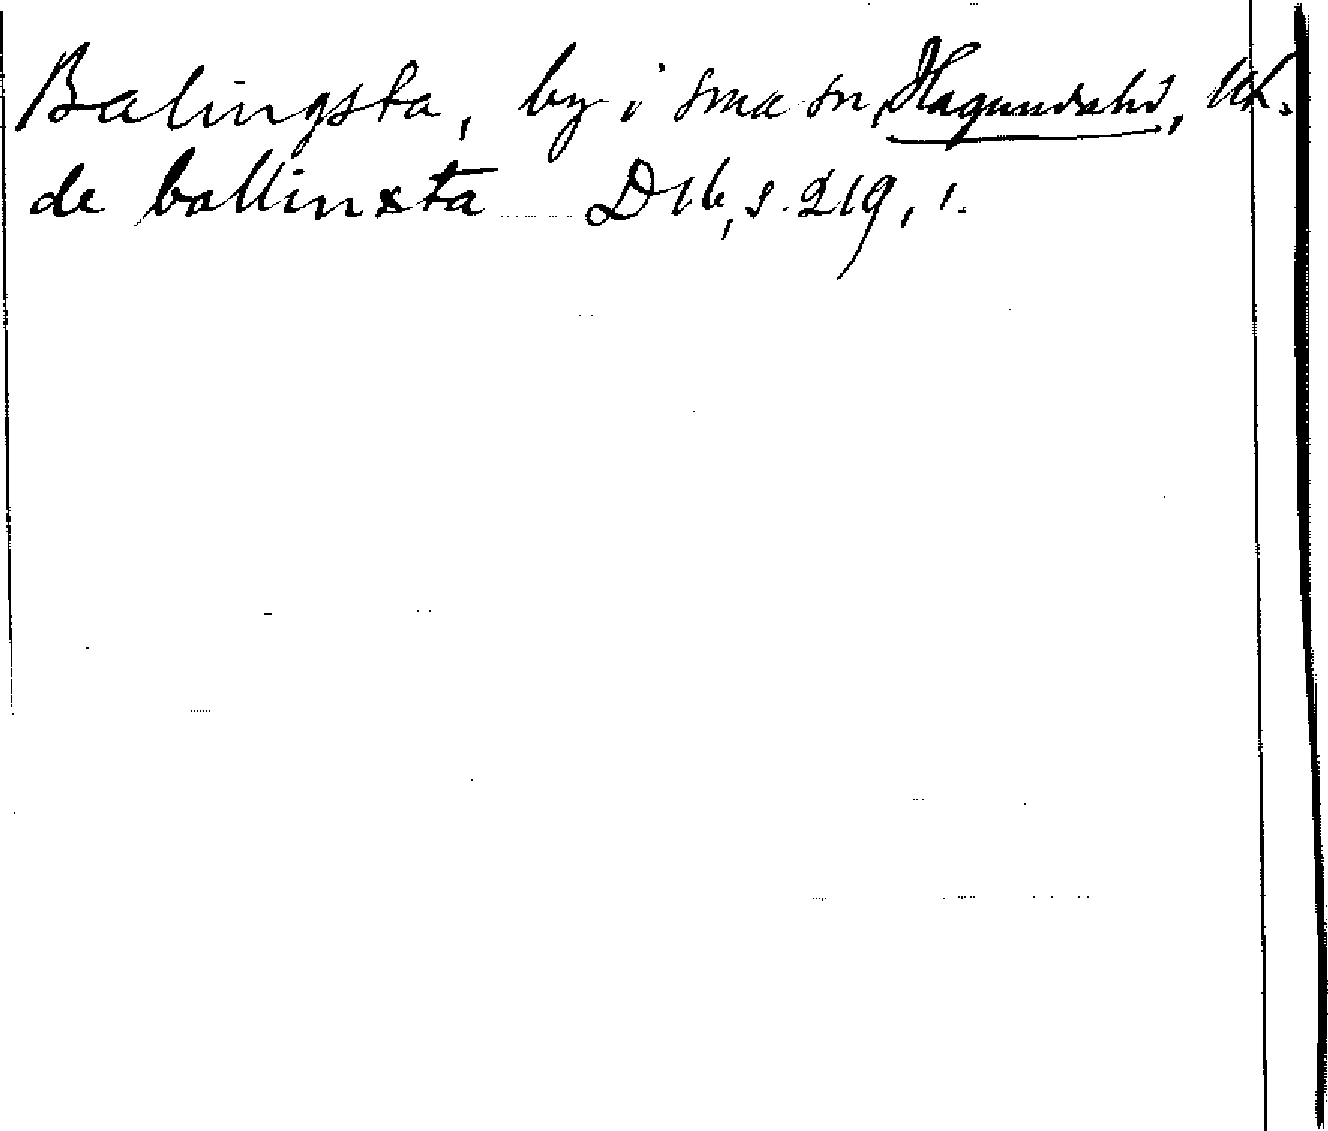 Balingsta, by i sma sn, Hagundahd, Uk.
de ballinxsta D 16, s. 219, 1.